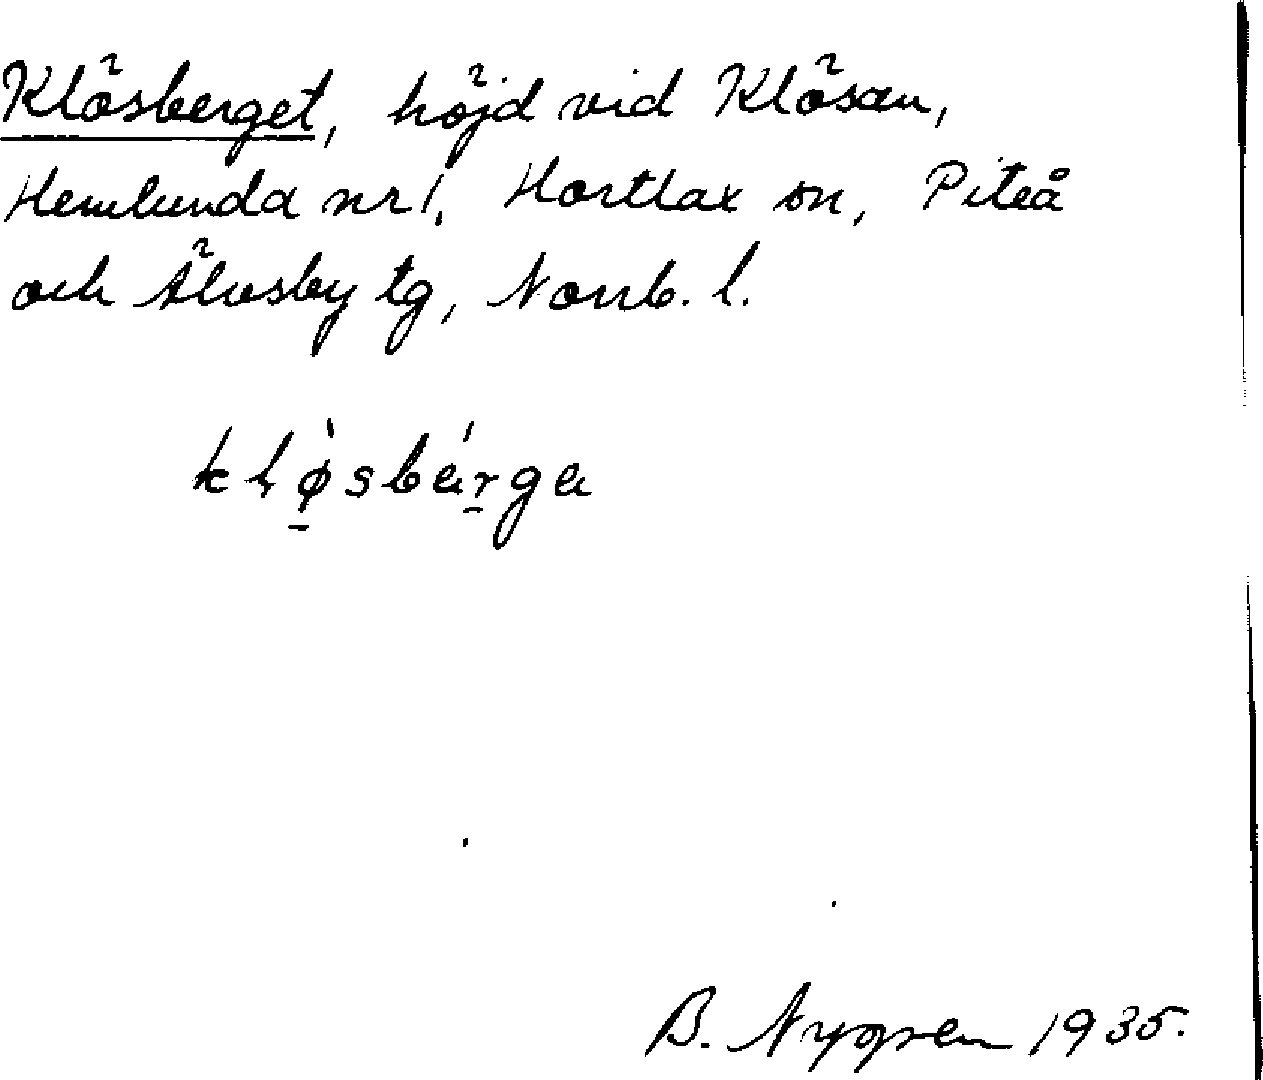 Klösberget, höjd vid Klösan,
Hemlunda nr 1, Hortlax sn, Piteå
och Älvsby tg, Norrb. l.
klø̠̀sbárga
B. Nygren 1935.